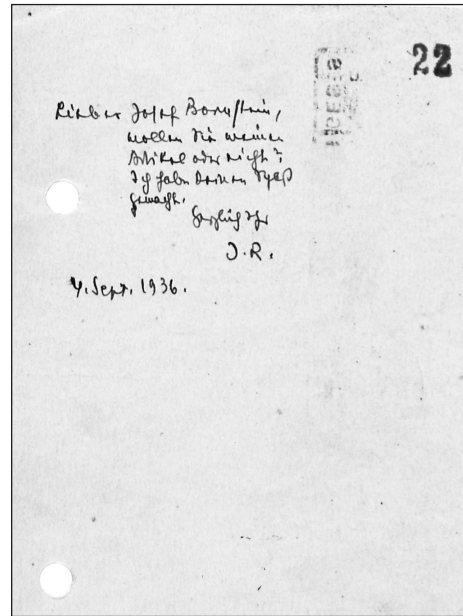 22
Lieber Josef Bornstein,
wollen Sie meinen
Artikel oder nicht?
Ich habe keinen Spaß
gemacht.
Herzlich Ihr
J.R.
4. Sept. 1936.